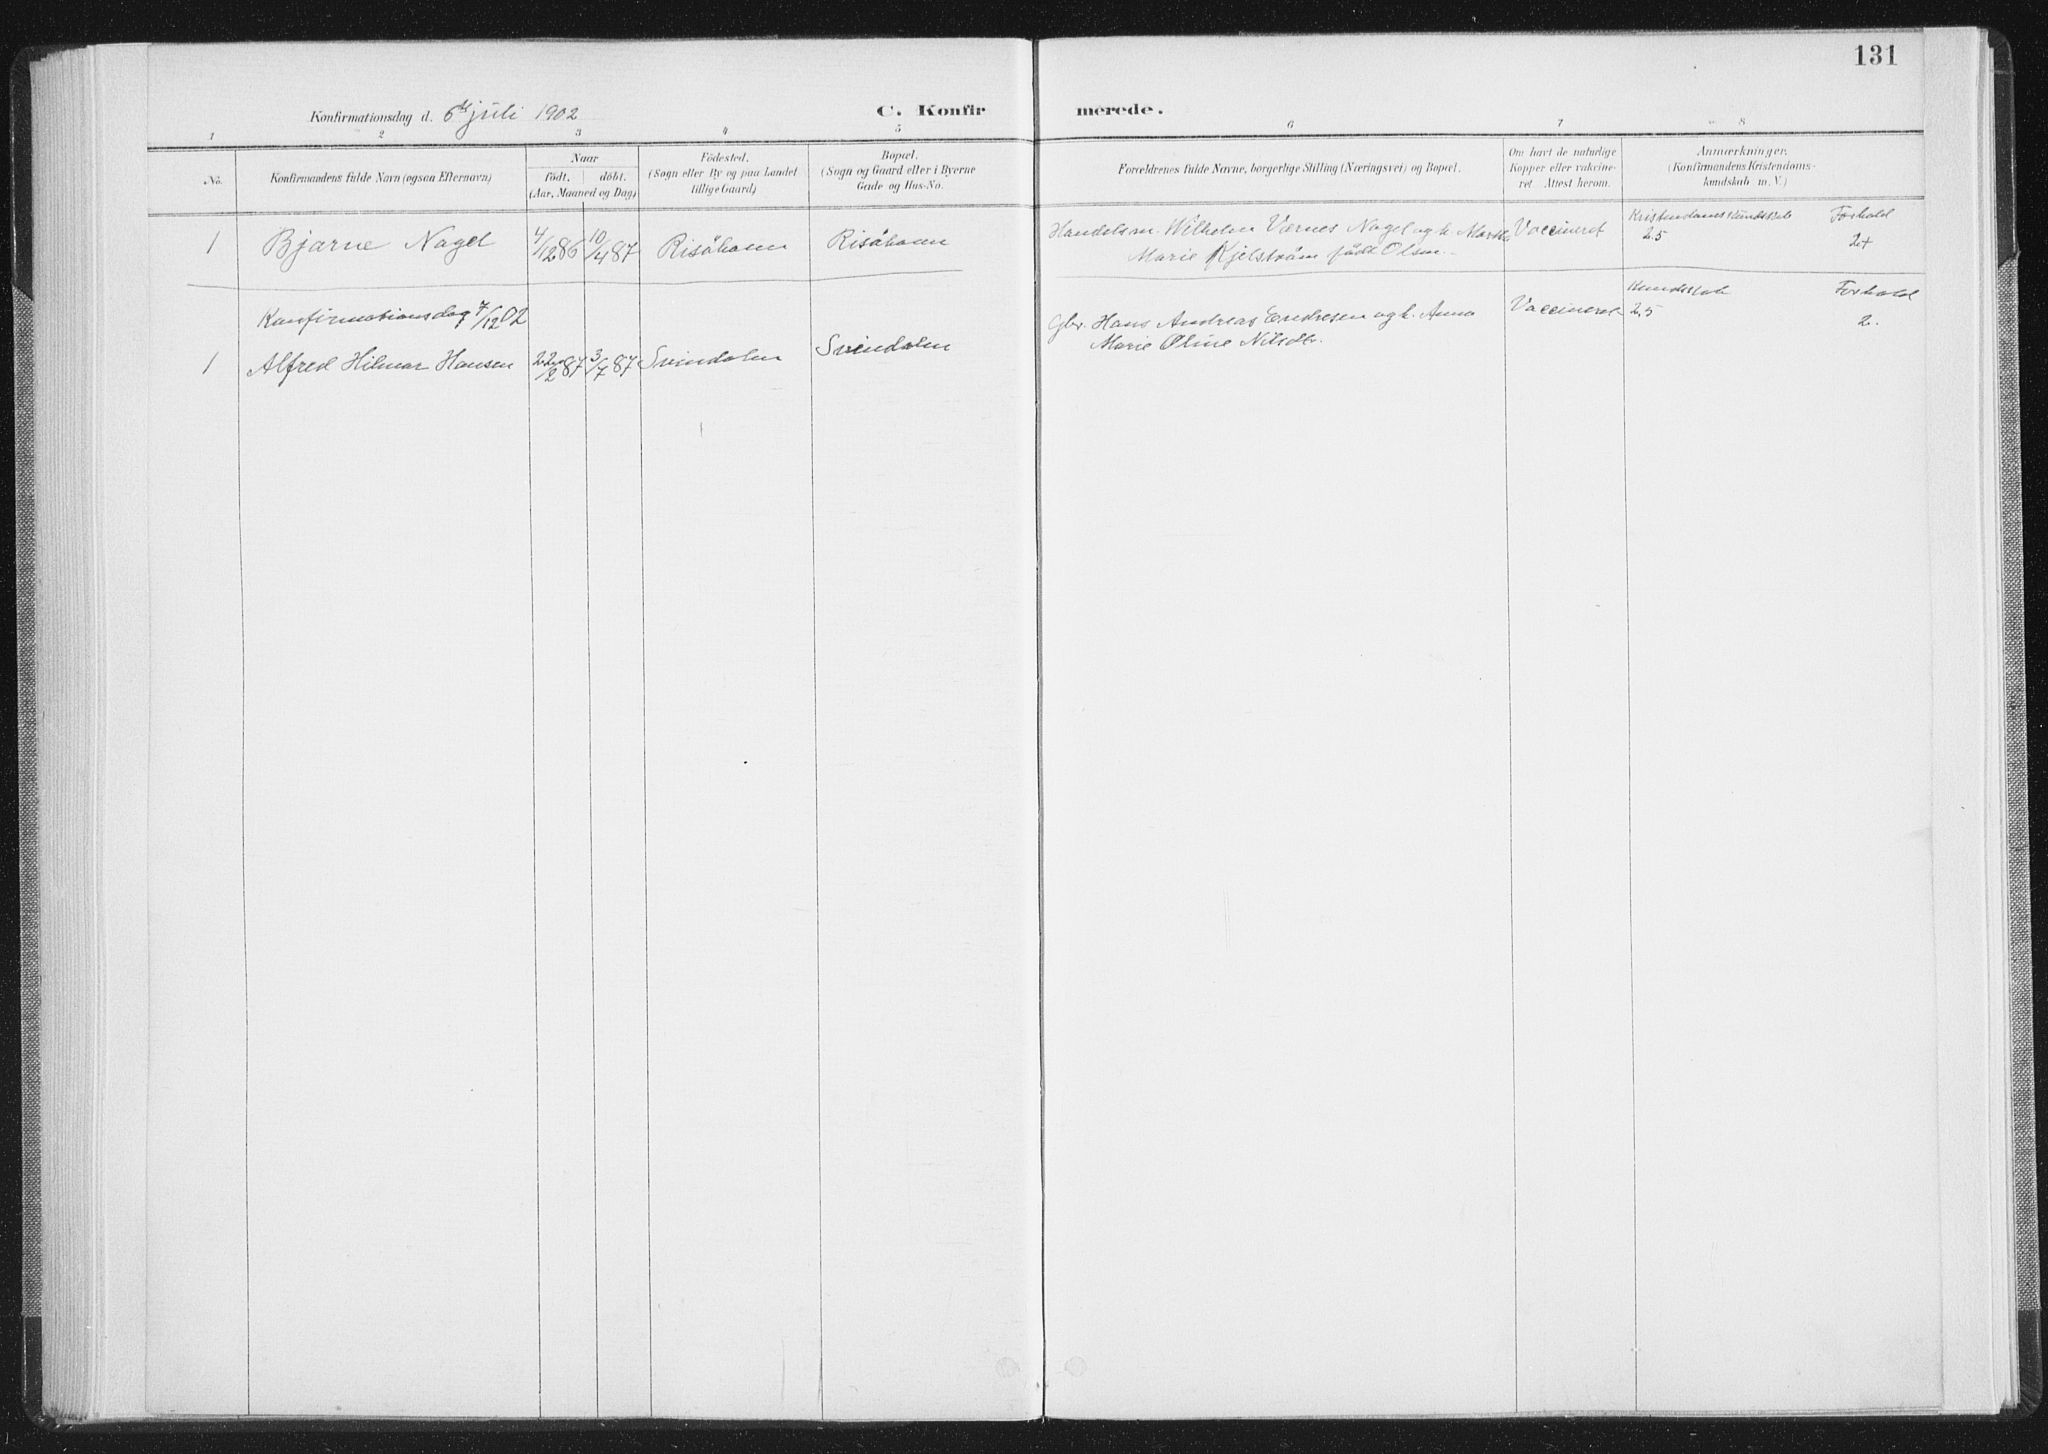 131
Konfirmationsdag d. 6te juli 1902
C. Konfirmerede.
1 2 3 4 5 6 7 8
No.
Konfirmandens fulde Navn (ogsaa Efternavn)
Naar
födt. döbt.
(Aar, Maaned og Dag)
Födested.
(Sogn eller By og paa Landet
tillige Gaard)
Bopæl.
(Sogn og Gaard eller i Byerne
Gade og Hus-No.
Forældrenes fulde Navne, borgerlige Stilling (Næringsvei) og Bopæl.
Om havt de naturlige
Kopper eller vakcine-
ret. Attest herom.
Anmærkninger.
(Konfirmandens Kristendoms-
kundskab m. V.)
Kristendomskundskab Forhold
1 Bjarne Nagel 4/12 86 10/4 87 Risöhavn Risöhavn Handelsm. Wilhelm Værnes Nagel og h. Martha Vaccineret 2.5 2+
Marie Kjelström född Olsen.
Kundskab Forhold
Konfirmationsdag 7/12 02
Gbr. Hans Andreas Endresen og h. Anna Vaccineret 2.5 2.
Marie Oline Nilsdtr.
1 Alfred Hilmar Hansen 22/2 87 3/7 87 Svindalen Svindalen